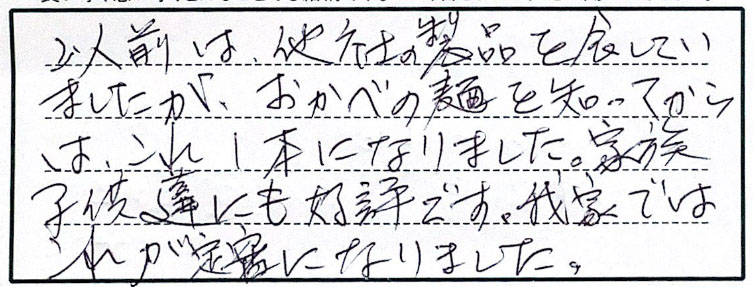 以前は、他社の製品を食してい
ましたが、おかべの麺を知ってから
は、これ1本になりました。家族
子供達にも好評です。我家では
これが定番になりました。